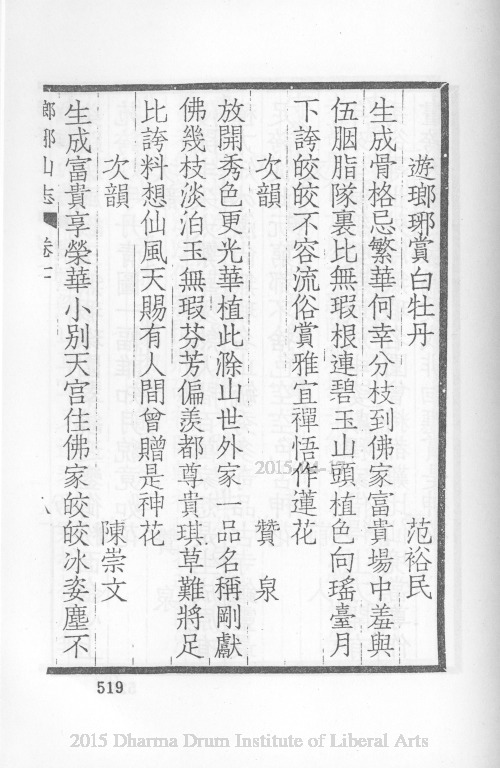 遊瑯琊賞白牡丹　范裕民
生成骨格忌繁華何幸分枝到佛家富貴場中羞與
伍胭脂隊裏比無瑕根連碧玉山頭植色向瑤臺月
下誇皎皎不容流俗賞雅宜禪悟作蓮花
次韻　贊泉
放開秀色更光華植此滁山世外家一品名稱剛獻
佛幾枝淡泊玉無瑕芬芳偏羨都尊貴琪草難將足
比誇料想仙風天賜有人間曾贈是神花
次韻　陳崇文
生成富貴享榮華小別天宮住佛家皎皎冰姿塵不
瑯琊山志　卷十　八
519
2015 Dharma Drum Institute of Liberal Arts